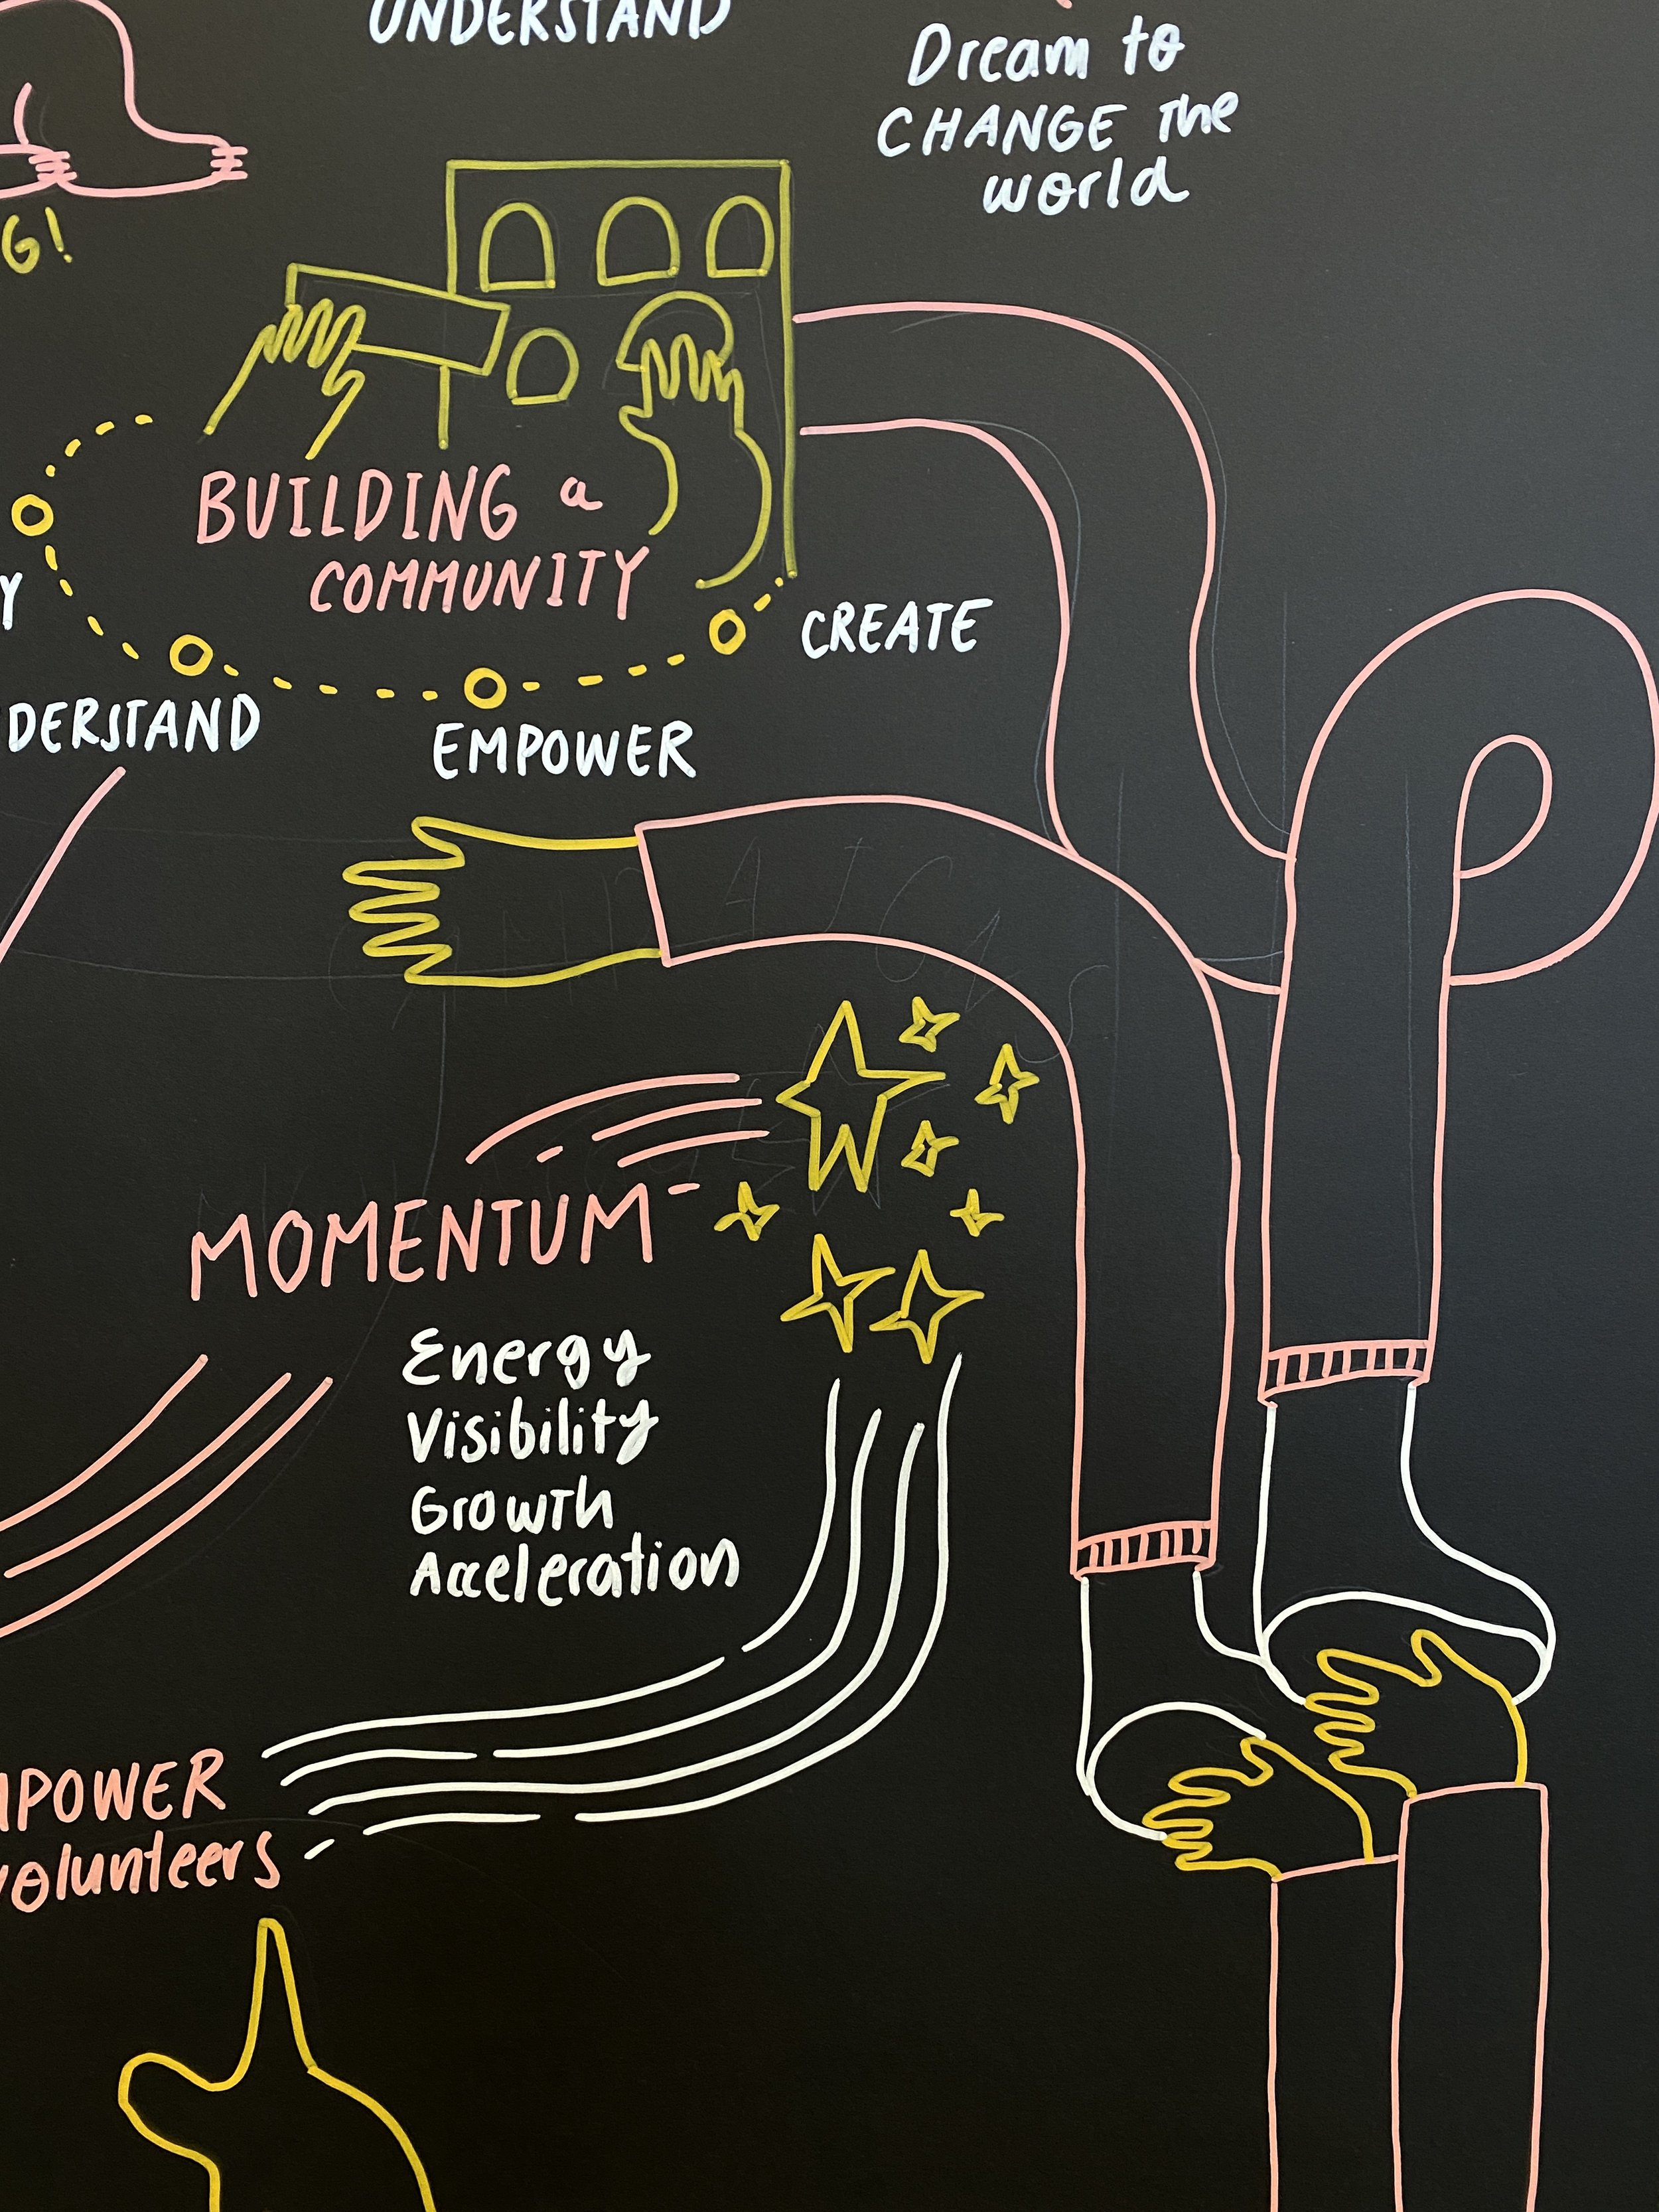 UNDERSTAND
Dream to
CHANGE the
world
G!
BUILDING a
COMMUNITY
Y
CREATE
DERSTAND
EMPOWER
MOMENTUM
Energy
Visibility
Growth
Acceleration
MPOWER
volunteers